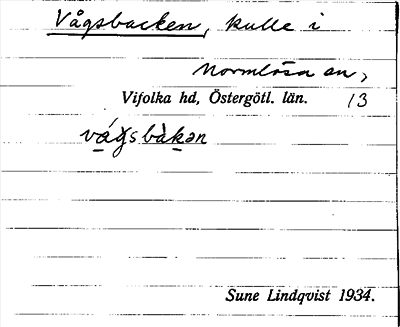 Vågsbacken, kulle i
Normlösa sn,
Vifolka hd, Östergötl. län. 13
vá̱gsbàḵən
Sune Lindqvist 1934.